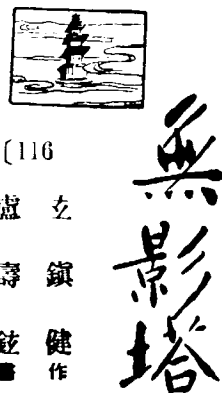 無影塔
(116
玄鎭健作
盧壽鉉畵